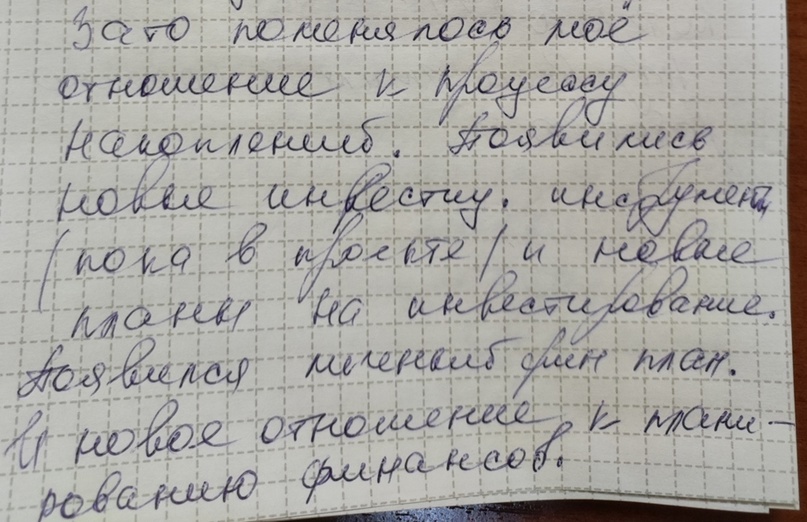 Зато поменялось моё
отношение к процессу
накоплений. Появились
новые инвестиц. инструменты
/пока в проекте/ и новые
планы на инвестирование.
Появился личный фин план.
И новое отношение к плани-
рованию финансов.